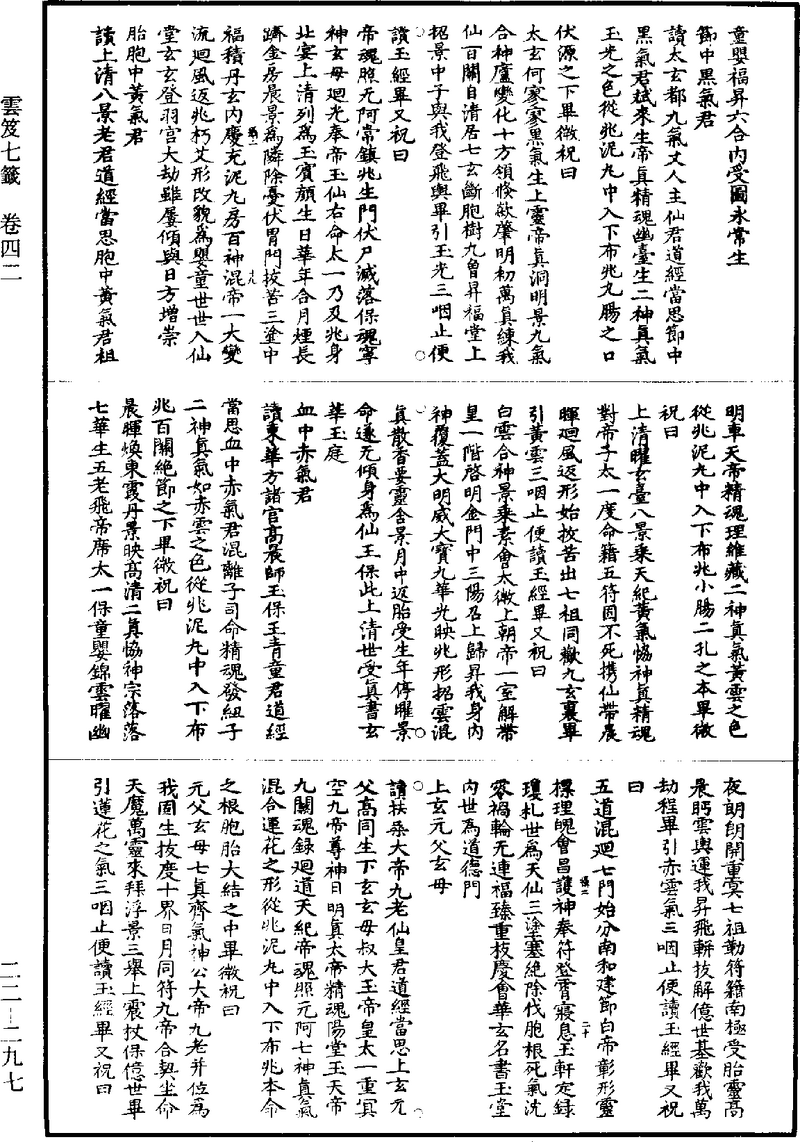 雲笈七籤　卷四二
二二－二九七
童嬰福昇六合內受圖永常生
節中黑氣君
讀太玄都九氣丈人主仙君道經當思節中
黑氣君斌來生帝真精魂幽臺生二神真氣
玉光之色從兆泥丸中入下布兆九腸之口
伏源之下畢微祝曰
太玄何寥寥黑氣生上靈帝真洞明景九氣
合神廬變化十方領倏欻肇明初萬真練我
仙百關自清居七玄斷胞樹九曾昇福堂上
招景中子與我登飛輿畢引玉光三咽止便
讀玉經畢又祝曰
帝魂照无阿常鎮兆生門伏尸滅落保魂寧
神玄母迴光奉帝玉仙右命太一乃及兆身
北宴上清列為玉賓顏生日華年合月煙長
躋金房晨景為隣除憂伏胃門拔苦三塗中
福積丹玄內慶充泥丸房百神混帝一大變
流迴風返兆朽艾形改貌為嬰童世世入仙
堂玄玄登羽宮大劫雖屢傾與日方增崇
胎胞中黃氣君
讀上清八景老君道經當思胞中黃氣君祖
明車天帝精魂理維藏二神真氣黃雲之色
從兆泥丸中入下布兆小腸二孔之本畢微
祝曰
上清曜玄臺八景乘天紀黃氣恊神真精魂
對帝子太一度命籍五符固不死携仙帶晨
暉迴風返形始拔苦出七祖同歡九玄裏畢
引黃雲三咽止便讀玉經畢又祝曰
白雲合神景乘素會太微上朝帝一室解帶
皇一階啓明金門中三陽召上歸昇我身內
神覆蓋大明威大寶九華光映兆形招雲混
真散香要靈舍景月中返胎受生年停曜景
命遂无傾身為仙王保此上清世受真書玄
華玉庭
血中赤氣君
讀東華方諸宮高晨師玉保王青童君道經
當思血中赤氣君混離子司命精魂發紐子
二神真氣如赤雲之色從兆泥丸中入下布
兆百關絕節之下畢微祝曰
晨暉煥東霞丹景映高清二真恊神宗落落
七華生五老飛帝席太一保童嬰錦雲曜幽
夜朗朗開重冥七祖勒符籍南極受胎靈高
晨眄雲輿運我昇飛軿拔解億世基歡我萬
劫程畢引赤雲氣三咽止便讀玉經畢又祝
曰
五道混迴七門始分南和建節白帝彰形靈
標理魄會昌護神奉符登霄寢息玉軒定錄
瓊札世為天仙三塗塞絕除伐胞根死氣沈
零禍輪无連福臻重枝慶會華玄名書玉堂
內世為道德門
上玄元父玄母
讀扶桑大帝九老仙皇君道經當思上玄元
父高同生下玄玄母叔大王帝皇太一重冥
空九帝尊神日明真太帝精魂陽堂玉天帝
九關魂錄迴道天紀帝魂照元阿七神真氣
混合蓮花之形從兆泥丸中入下布兆本命
之根胞胎大結之中畢微祝曰
元父玄母七真齊氣神公大帝九老并位為
我固生拔度十界日月同符九帝合契坐命
天魔萬靈來拜浮景三舉上震杖保億世畢
引蓮花之氣三咽止便讀玉經畢又祝曰